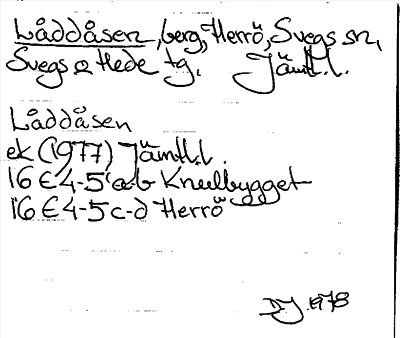 Låddåsen, berg, Herrö, Svegs sn,
Svegs o Hede tg. Jämtl.l.
Låddåsen
ek (1977) Jämtl.l.
16 E 4-5 a-b Knulbygget
16 E 4-5 c-d Herrö
DJ 1978